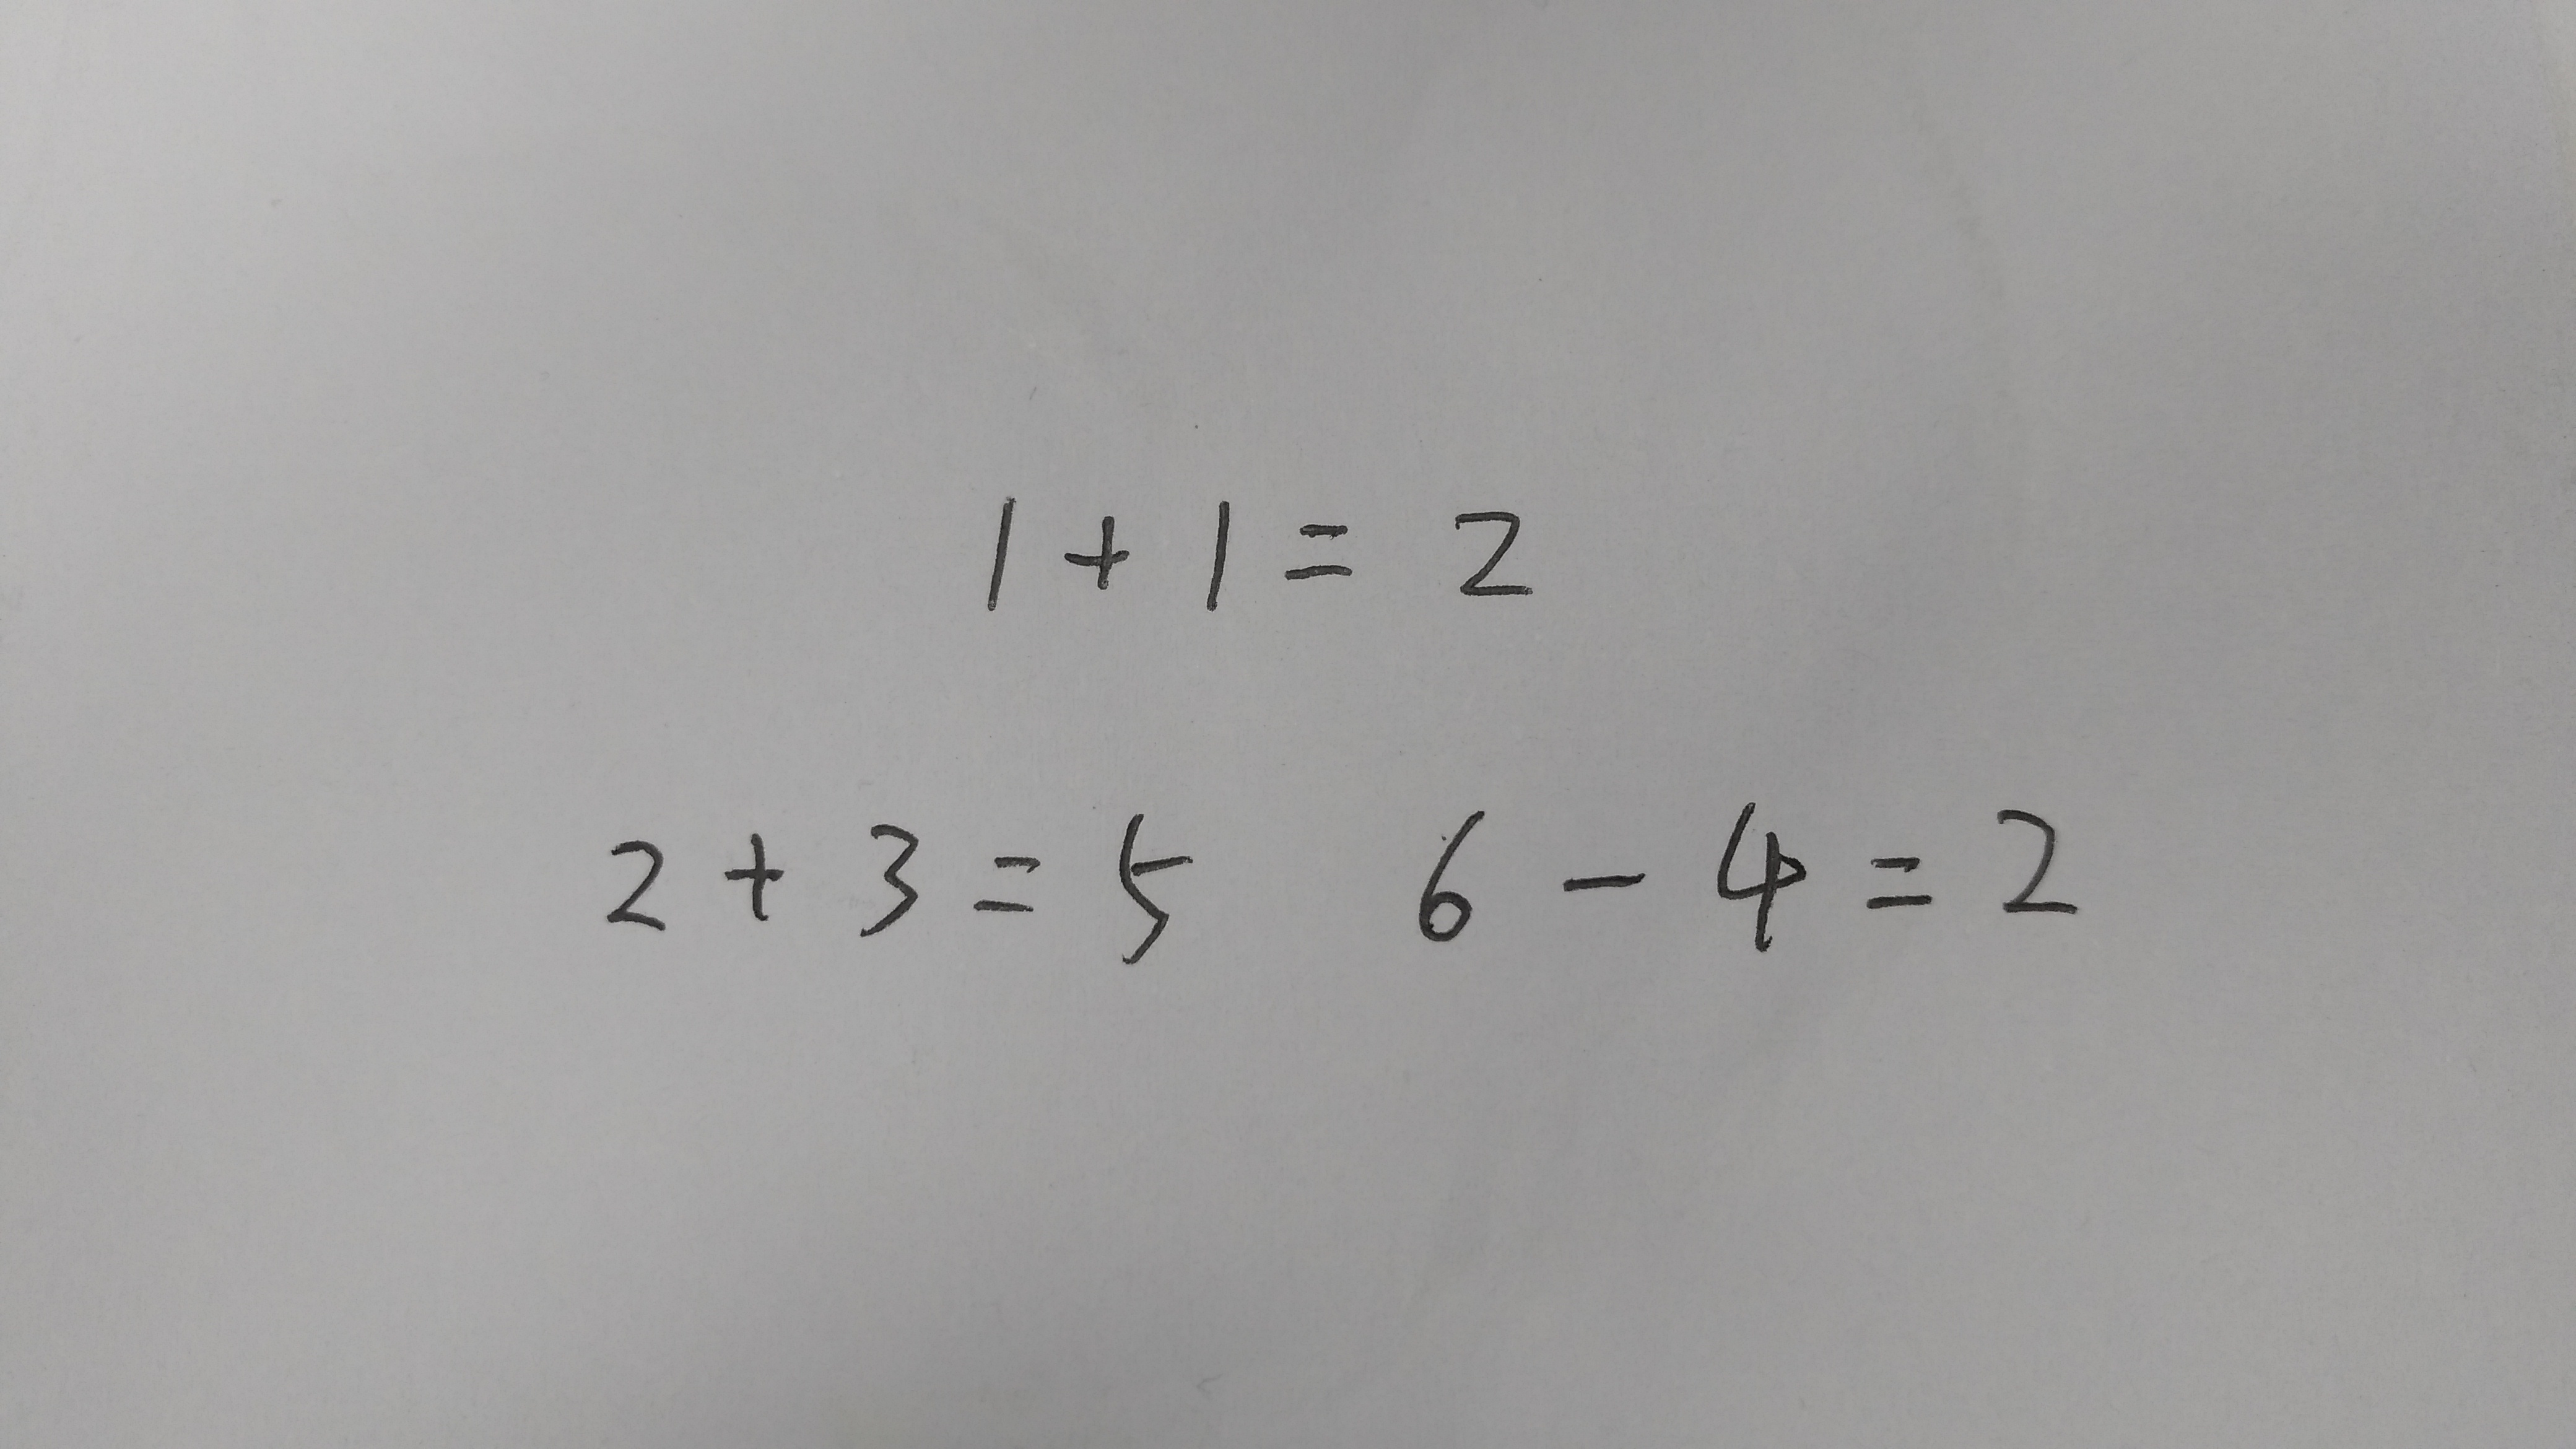 1 + 1 = 2
2 + 3 = 5 6 - 4 = 2